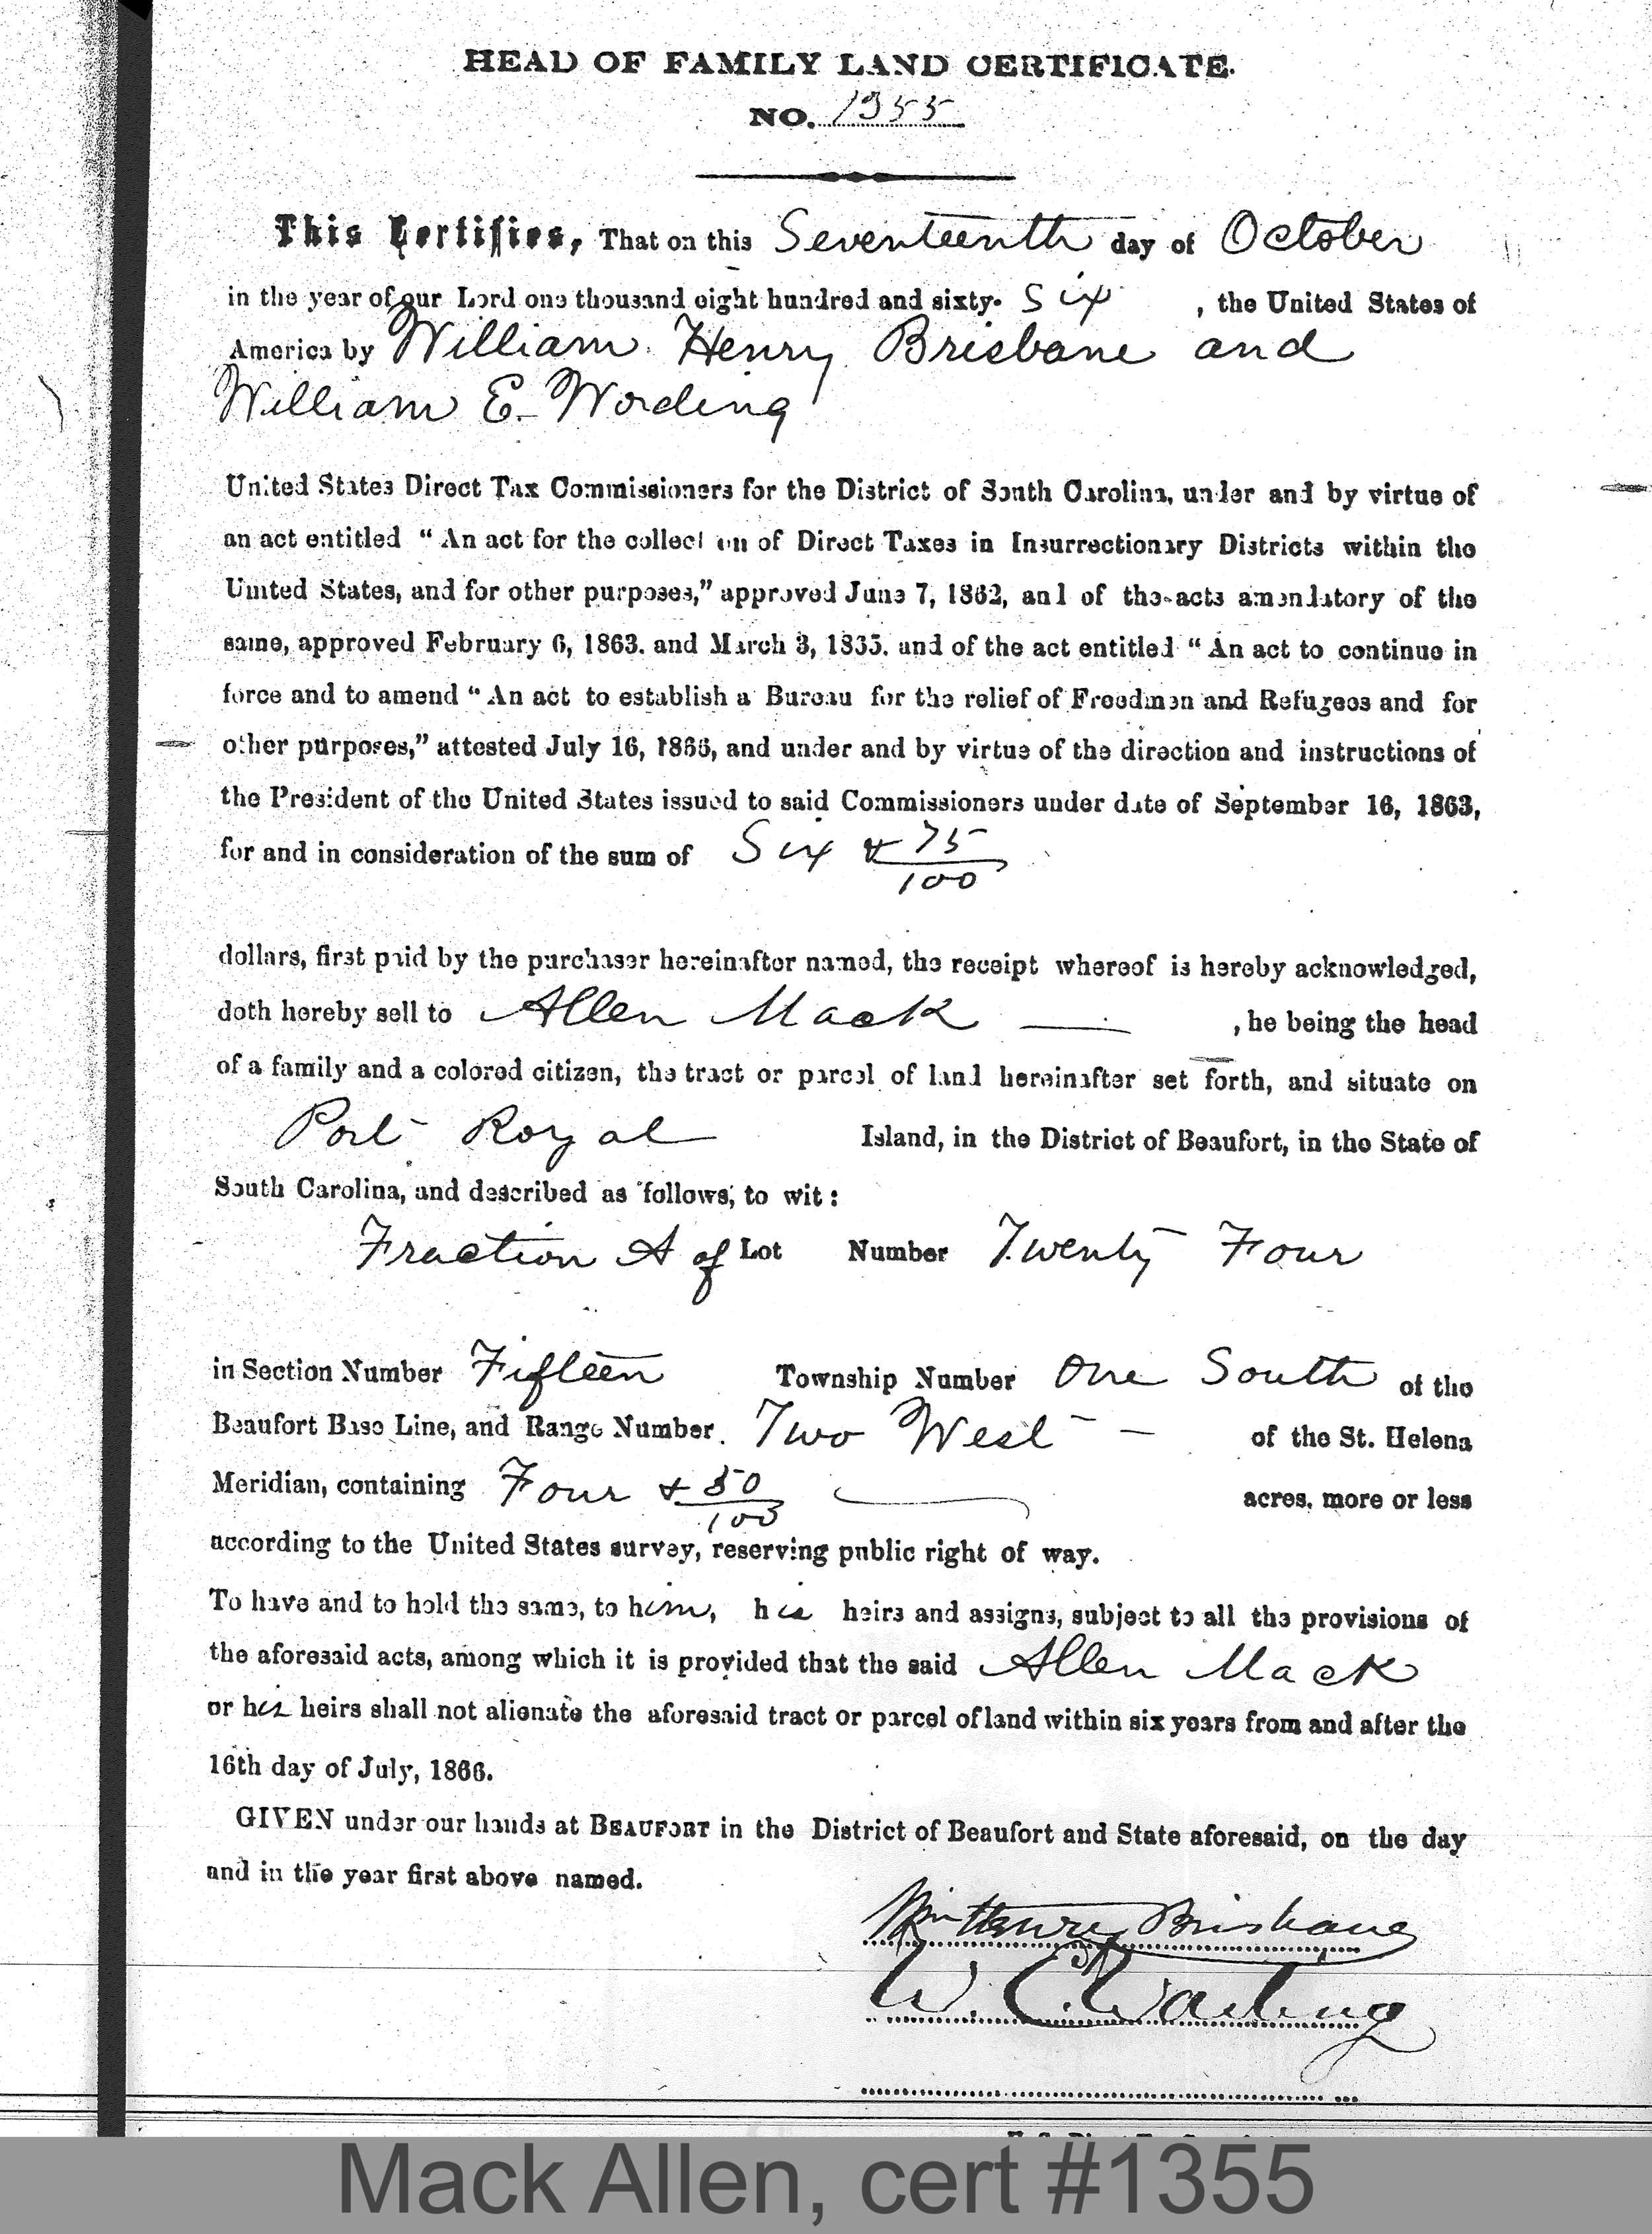 HEAD OF FAMILY LAND CERTIFICATE.
NO. 1355
This Certifies, That on this Seventeenth day of October
in the year of our Lord one thousand eight hundred and sixty- Six , the United States of
America by William Henry Brisbane and
William E. Wording
United States Direct Tax Commissioners for the District of South Carolina, under and by virtue of
an act entitled “An act for the collection of Direct Taxes in Insurrectionary Districts within the
United States, and for other purposes,” approved June 7, 1862, and of the acts amendatory of the
same, approved February 6, 1863. and March 3, 1865. and of the act entitled “An act to continue in
force and to amend “An act to establish a Bureau for the relief of Freedmen and Refugees and for
other purposes,” attested July 16, 1866, and under and by virtue of the direction and instructions of
the President of the United States issued to said Commissioners under date of September 16, 1863,
for and in consideration of the sum of Six & 75/100
dollars, first paid by the purchaser hereinafter named, the receipt whereof is hereby acknowledged,
doth hereby sell to Allen Mack — , he being the head
of a family and a colored citizen, the tract or parcel of land hereinafter set forth, and situate on
Port Royal Island, in the District of Beaufort, in the State of
South Carolina, and described as follows, to wit:
Fraction A of Lot Number Twenty Four
in Section Number Fifteen Township Number One South of the
Beaufort Base Line, and Range Number Two West — of the St. Helena
Meridian, containing Four & 50/100 acres, more or less
according to the United States survey, reserving public right of way.
To have and to hold the same, to him, his heirs and assigns, subject to all the provisions of
the aforesaid acts, among which it is provided that the said Allen Mack
or his heirs shall not alienate the aforesaid tract or parcel of land within six years from and after the
16th day of July, 1866.
GIVEN under our hands at BEAUFORT in the District of Beaufort and State aforesaid, on the day
and in the year first above named.
Wm Henry Brisbane
W. E. Wording
Mack Allen, cert #1355